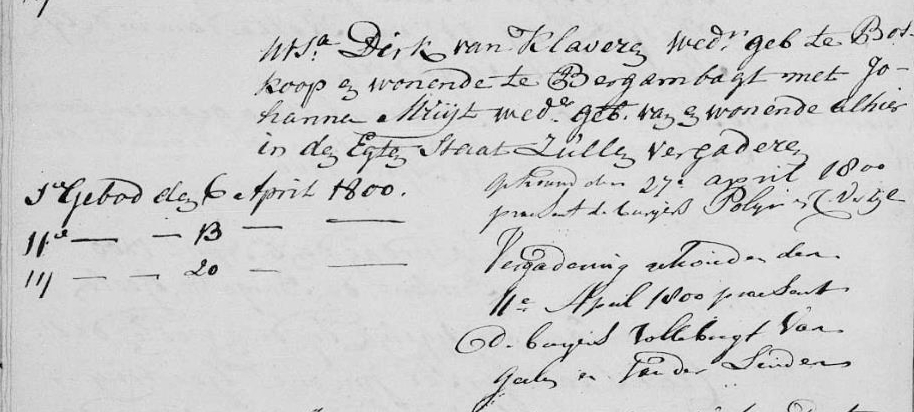 Dirk van Klaveren wedr. geb te Bos-
koop en wonende te Bergambagt met Jo-
hanna wede. geb. van en wonende alhier
in den Egten Staat Zullen vergaderen
1e Gebod den 6 April 1800.
getrouwd den 27e april 1800
present de burgers
11e — — 13 — —
111 — — 20 — —
Vergadering gehouden den
11e April 1800 present
d. burgers Van
en Van der Linden